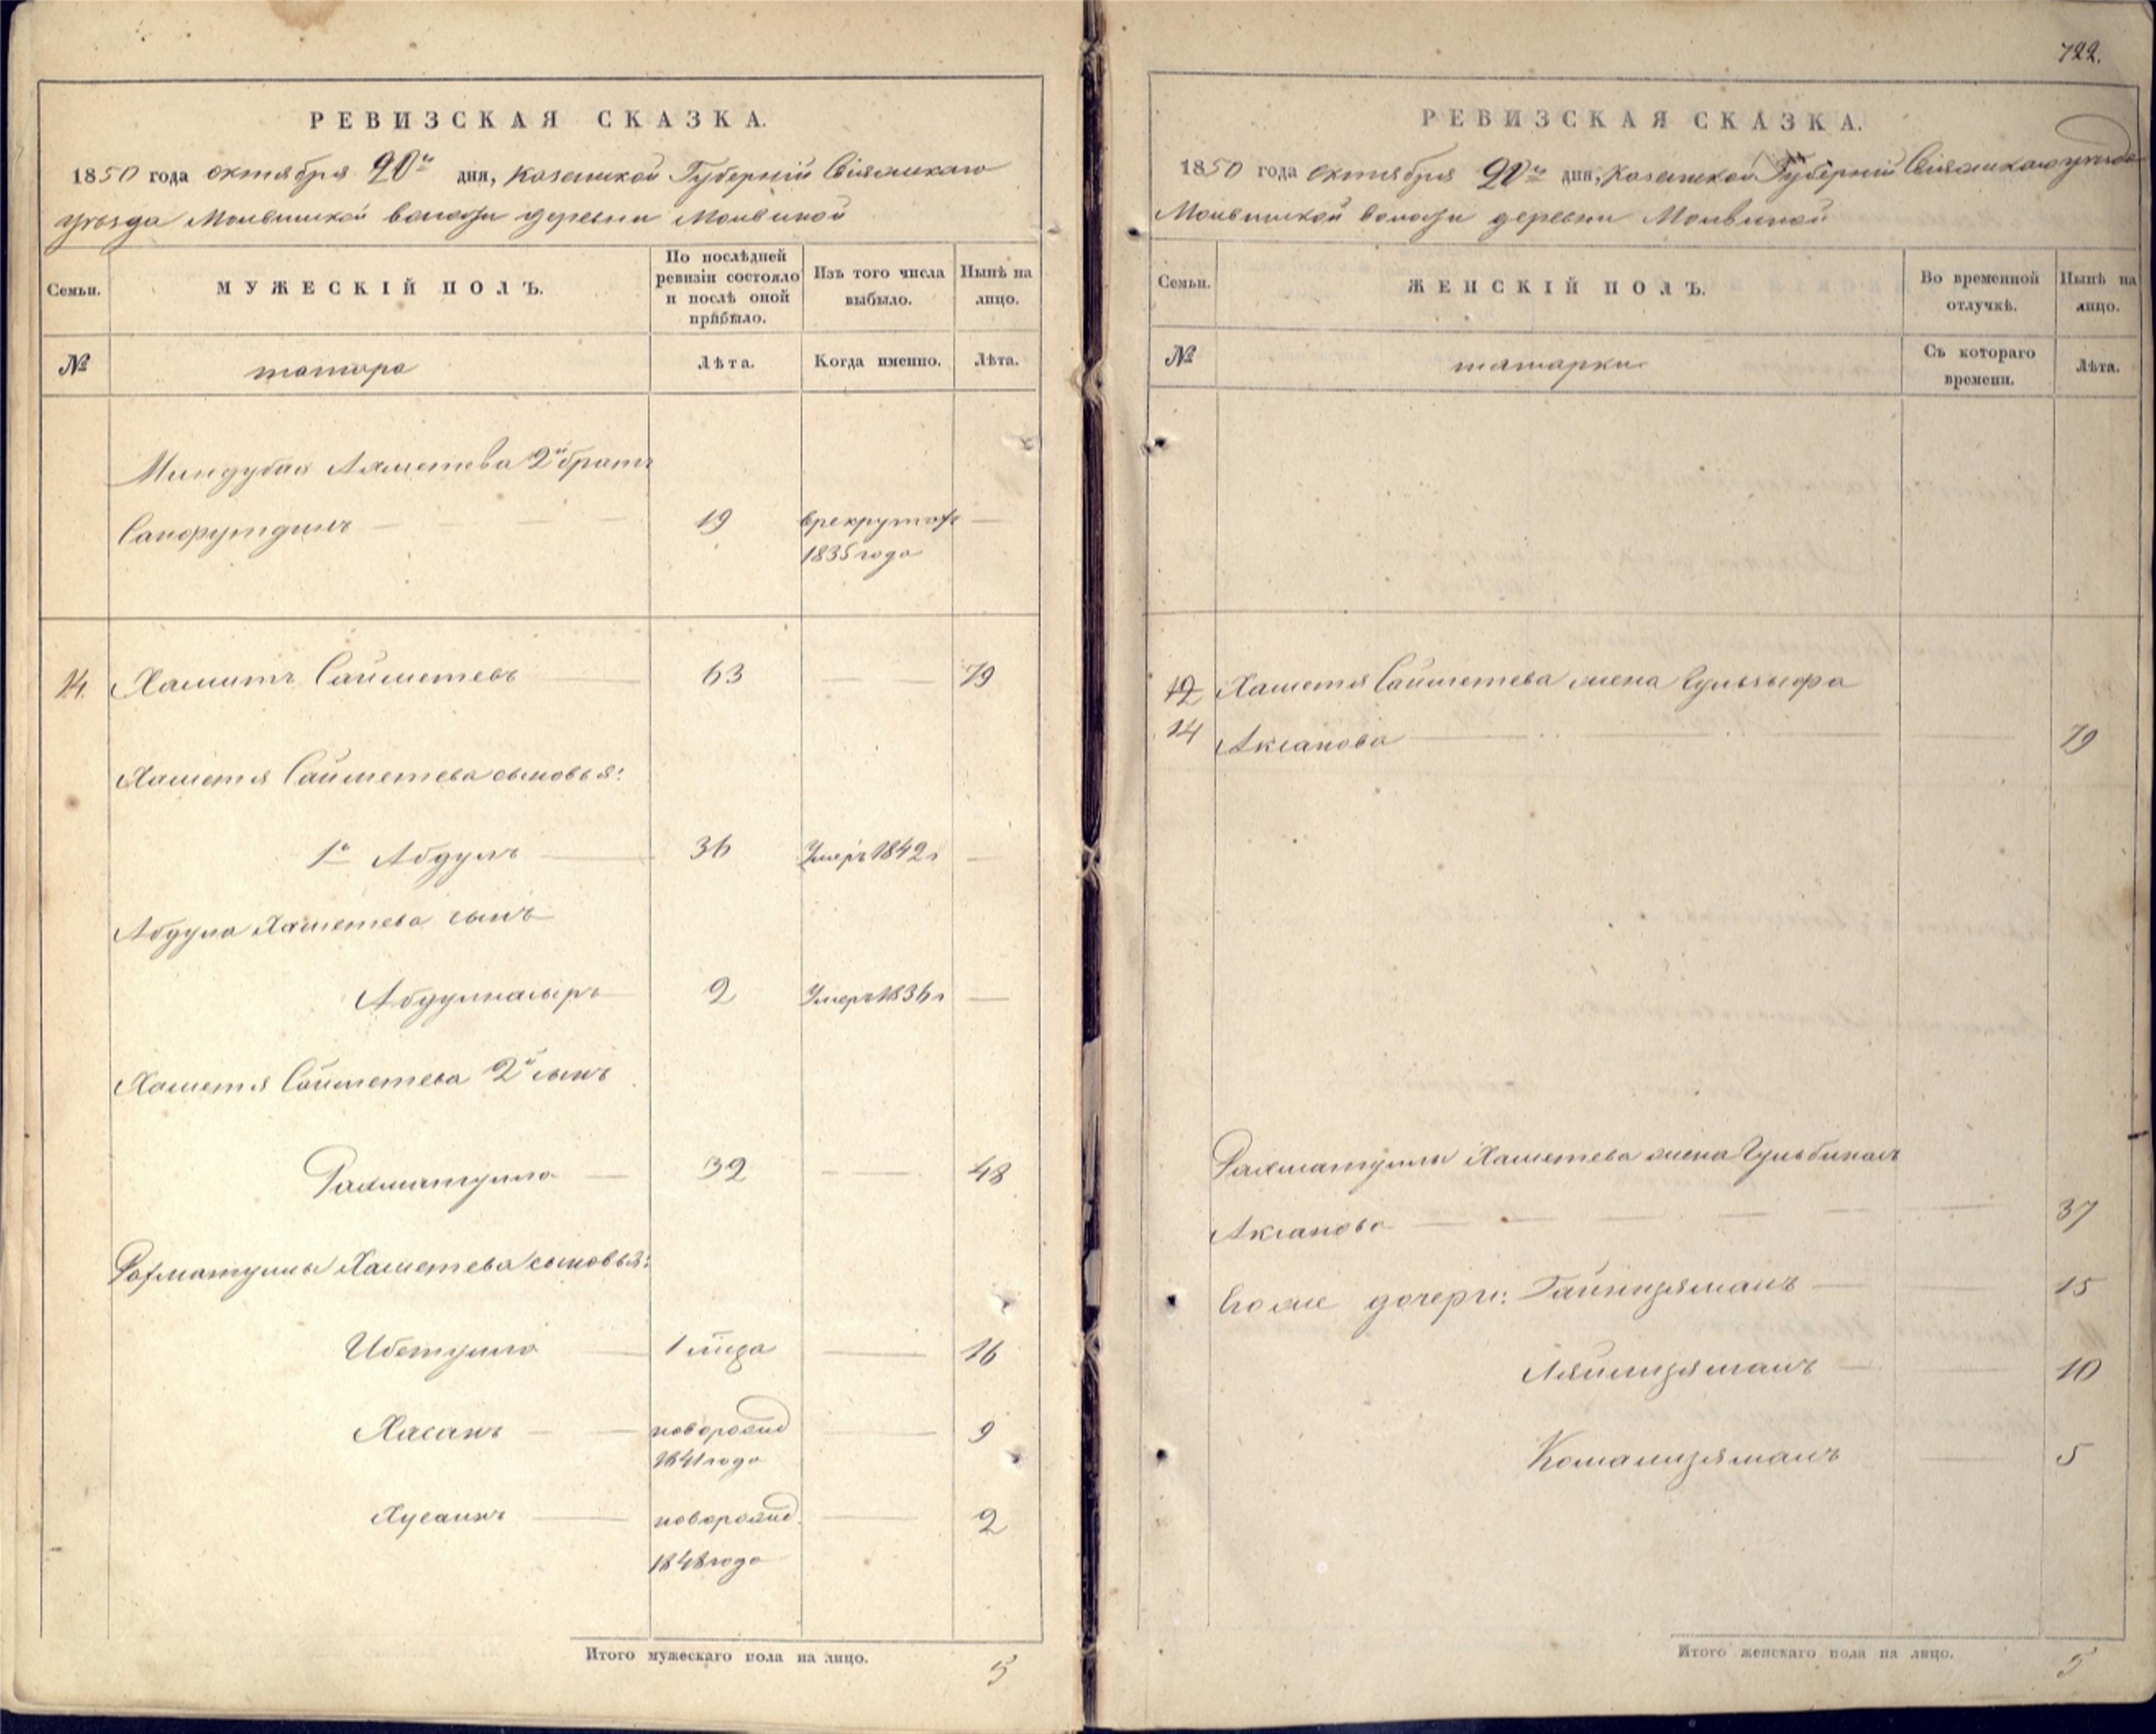 РЕВИЗСКАЯ СКАЗКА.
1850 года октября 20го дня, Казанской Губернии Свіяжскаго
уѣзда волости деревни
Семьи.
МУЖЕСКІЙ ПОЛЪ.
По послѣдней ревизіи состояло и послѣ оной прибыло.
Изъ того числа выбыло.
Нынѣ на лицо.
№
татара
Лѣта.
Когда именно.
Лѣта.
Миндубая Ахметева 2й братъ
19 в рекрутах —
1835 года
14. Хамитъ Сайметевъ 63 — 79
Хаметя Сайметева сыновья:
1й Абдулъ 36 Умеръ 1842 г —
Абдула Хаметева сынъ
Абдулнасыръ 2 Умеръ 1836 г —
Хаметя Сайметева 2й сынъ
Рахматулла — 32 — 48
Рахматуллы Хаметева сыновья:
Ибетулла — 1 — 16
Хасанъ — новорожд — 9
1841 года
Хусаинъ — новорожд. — 2
1848 года
Итого мужескаго пола на лицо. 5
722.
РЕВИЗСКАЯ СКАЗКА.
1850 года октября 20го дня, Казанской Губернии Свіяжскаго уѣзда
волости деревни
Семьи.
ЖЕНСКІЙ ПОЛЪ.
Во временной отлучкѣ.
Нынѣ на лицо.
№
татарки
Съ котораго времени.
Лѣта.
12 Хаметя Сайметева жена
14 Аксанова — 79
Рахматуллы Хаметева жена
Аксанова — 37
Его же дочери: Гайнизяманъ — 15
Ляйлизяманъ — 10
Камализяманъ — 5
Итого женскаго пола на лицо. 5